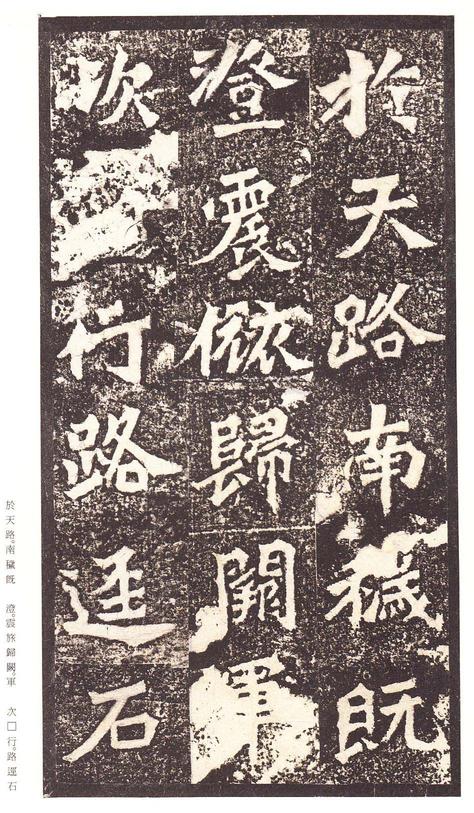 於天路南穢既
澄震旅歸闕軍
次行路逕石
於天路。南穢既 澄。震旅歸闕。軍 次□行。路逕石